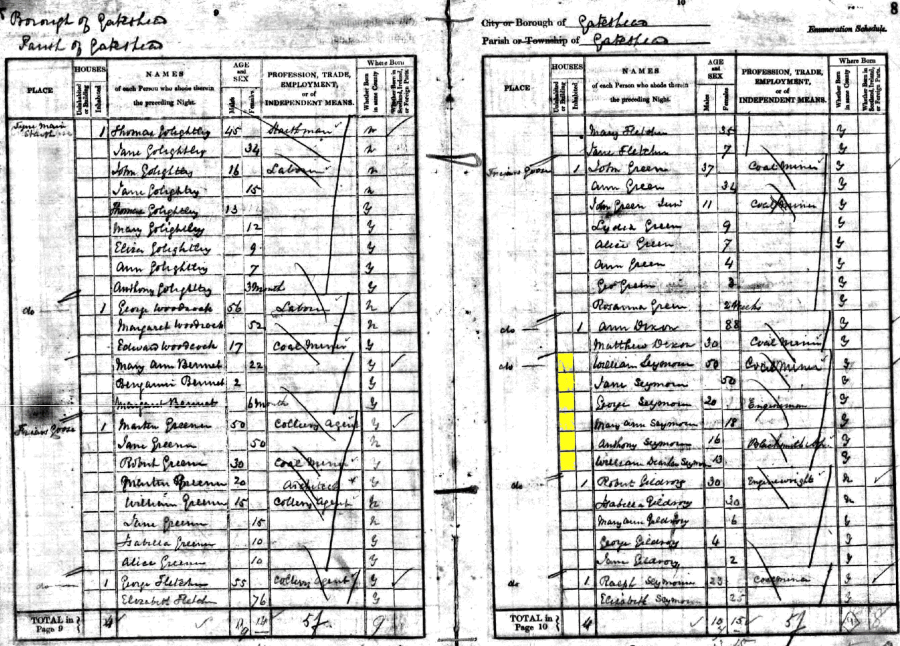 Borough of Gateshead
Parish of Gateshead
PLACE
HOUSES
Uninhabited or Building
Inhabited
NAMES
of each Person who abode therein
the preceding Night.
AGE
and
SEX
Males
Females
PROFESSION, TRADE,
EMPLOYMENT,
or of
INDEPENDENT MEANS.
Where Born
Whether Born in same County
Whether Born in Scotland, Ireland, or Foreign Parts.
1 Thomas Golightly 45 n
Jane Golightly 34 n
John Golightly 16 Labour n
Jane Golightly 15 n
Thomas Golightly 13 y
Mary Golightley 12 y
Eliza Golightly 9 y
Ann Golightly 7 y
Anthony Golightly 3 month y
do 1 George Woodcock 56 Labour n
Margaret Woodcock 52 n
Edward Woodcock 17 Coal Miner y
Mary Ann Bennet 22 y
Benjamin Bennet 2 y
Margaret Bennet 6 month y
Friars Goose 1 Martin Greener 50 Colliery Agent y
Jane Greener 50 n
Robert Greener 30 Coal Miner y
Martin Greener 20 Architect
William Greener 15 Colliery Agent n
Jane Greener 15 n
Isabella Greener 10 y
Alice Greener 10 y
1 George Fletcher 55 Colliery Agent y
Elizabeth Fletcher 76 y
TOTAL in
Page 9
4
9
8
City or Borough of Gateshead
Parish or Township of Gateshead
Enumeration Schedule.
PLACE
HOUSES
Uninhabited or Building
Inhabited
NAMES
of each Person who abode therein
the preceding Night.
AGE
and
SEX
Males
Females
PROFESSION, TRADE,
EMPLOYMENT,
or of
INDEPENDENT MEANS.
Where Born
Whether Born in same County
Whether Born in Scotland, Ireland, or Foreign Parts.
Mary Fletcher 35 y
Jane Fletcher 7 y
Friars Goose 1 John Green 37 Coal Miner y
Ann Green 34 y
John Green Jun 11 Coal Miner y
Lydia Green 9 y
Alice Green 7 y
Ann Green 4 y
Geo Green y
Rosanna Green y
do 1 Ann Dixon 88 y
Matthew Dixon 30 Coal Miner y
do William Seymour 50 Coal Miner y
Jane Seymour 50 y
George Seymour 20 Engineman y
Mary Ann Seymour 18 y
Anthony Seymour 16 y
William Seymour 13 y
do 1 Robert Gildroy 30 Enginewright n
Isabella Gildroy 30 n
Mary Ann Gildroy 6 y
George Gildroy 4 y
Jane Gildroy 2 y
do 1 Ralph Seymour 23 Coal Miner y
Elizabeth Seymour 25 y
TOTAL in
Page 10
4
10
15